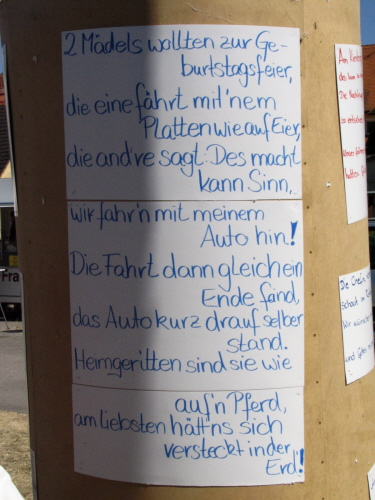 2 Mädels wollten zur Ge-
burtstagsfeier,
die eine fährt mit 'nem
Platten wie auf Eier,
die and're sagt: Des macht
kann Sinn,
wir fahr'n mit meinem
Auto hin!
Die Fahrt dann gleich ein
Ende fand,
das Auto kurz drauf selber
stand.
Heimgeritten sind sie wie
auf'n Pferd,
am liebsten hätt'ns sich
versteckt in der
Erd!
Am
Die
Die
schad
Wir
und
Fra